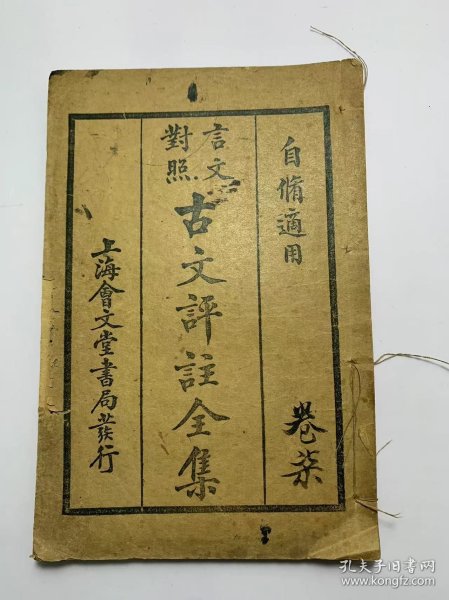 自脩適用
卷柒
言文
對照
古文評註全集
上海會文堂書局發行
孔夫子旧书网
www.kongfz.com